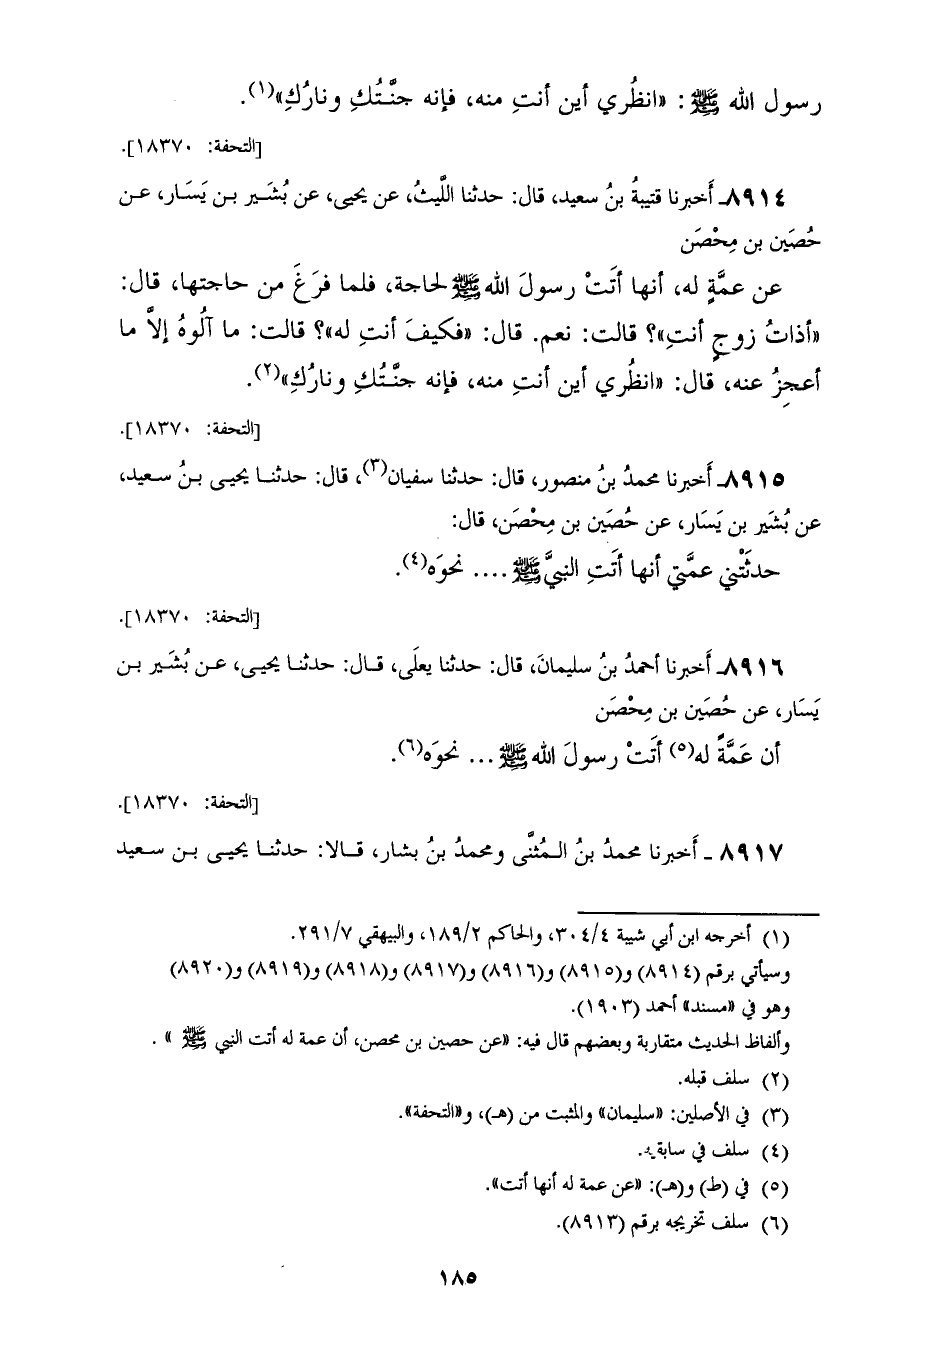 رسول الله ﷺ: «انظُري أين أنتِ منه، فإنه جنَّتُكِ ونارُكِ»(١).
[التحفة: ١٨٣٧٠].
٨٩١٤ـ أَخبرنا قتيبةُ بنُ سعيد، قال: حدثنا اللَّيثُ، عن يحيى، عن بُشَير بن يَسَار، عن
حُصَين بن مِحْصَن
عن عمَّةٍ له، أنها أَتَتْ رسولَ الله ﷺ لحاجة، فلما فرَغَ من حاجتها، قال:
«أذاتُ زوجٍ أنتِ»؟ قالت: نعم. قال: «فكيفَ أنتِ له»؟ قالت: ما آلُوهُ إلاَّ ما
أعجِزُ عنه، قال: «انظُري أين أنتِ منه، فإنه جنَّتُكِ ونارُكِ»(٢).
[التحفة: ١٨٣٧٠].
٨٩١٥ـ أَخبرنا محمدُ بنُ منصور، قال: حدثنا سفيان(٣)، قال: حدثنا يحيى بنُ سعيد،
عن بُشَير بن يَسَار، عن حُصَين بن مِحْصَن، قال:
حدثَتْني عمَّتي أنها أَتَتِ النبيَّ ﷺ .... نحوَه(٤).
[التحفة: ١٨٣٧٠].
٨٩١٦ـ أَخبرنا أحمدُ بنُ سليمانَ، قال: حدثنا يعلَى، قال: حدثنا يحيى، عن بُشَير بن
يَسَار، عن حُصَين بن مِحْصَن
أن عَمَّةً له(٥) أَتَتْ رسولَ الله ﷺ ... نحوَه(٦).
[التحفة: ١٨٣٧٠].
٨٩١٧ ـ أَخبرنا محمدُ بنُ المُثنَّى ومحمدُ بنُ بشار، قالا: حدثنا يحيى بن سعيد
(١) أخرجه ابن أبي شيبة ٣٠٤/٤، والحاكم ١٨٩/٢، والبيهقي ٢٩١/٧.
وسيأتي برقم (٨٩١٤) و(٨٩١٥) و(٨٩١٦) و(٨٩١٧) و(٨٩١٨) و(٨٩١٩) و(٨٩٢٠)
وهو في «مسند» أحمد (١٩٠٣).
وألفاظ الحديث متقاربة وبعضهم قال فيه: «عن حصين بن محصن، أن عمة له أتت النبي ﷺ » .
(٢) سلف قبله.
(٣) في الأصلين: «سليمان» والمثبت من (هـ)، و«التحفة».
(٤) سلف في سابقيه.
(٥) في (ط) و(هـ): «عن عمة له أنها أتت».
(٦) سلف تخريجه برقم (٨٩١٣).
١٨٥